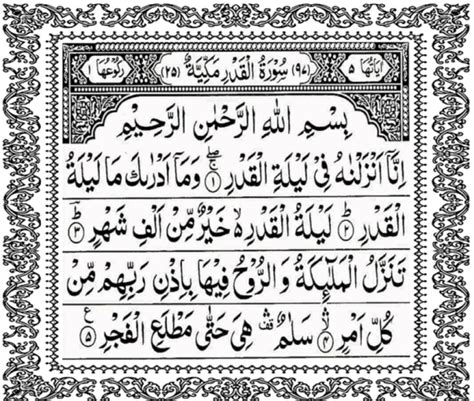 اٰيَاتُهَا ۵ (۹۷) سُوْرَةُ الْقَدْرِ مَكِّيَّةٌ (۲۵) رُكُوْعُهَا ۱
بِسْمِ اللّٰهِ الرَّحْمٰنِ الرَّحِيْمِ
اِنَّاۤ اَنْزَلْنٰهُ فِيْ لَيْلَةِ الْقَدْرِ ۚۖ ﴿۱﴾ وَمَاۤ اَدْرٰىكَ مَا لَيْلَةُ
الْقَدْرِ ؕ ﴿۲﴾ لَيْلَةُ الْقَدْرِ ۙ۬ خَيْرٌ مِّنْ اَلْفِ شَهْرٍ ؕ ﴿۳﴾
تَنَزَّلُ الْمَلٰٓئِكَةُ وَالرُّوْحُ فِيْهَا بِاِذْنِ رَبِّهِمْ مِّنْ
كُلِّ اَمْرٍ ۙۛ ﴿۴﴾ سَلٰمٌ ۛ۟ هِيَ حَتّٰى مَطْلَعِ الْفَجْرِ ﴿۵﴾ ع